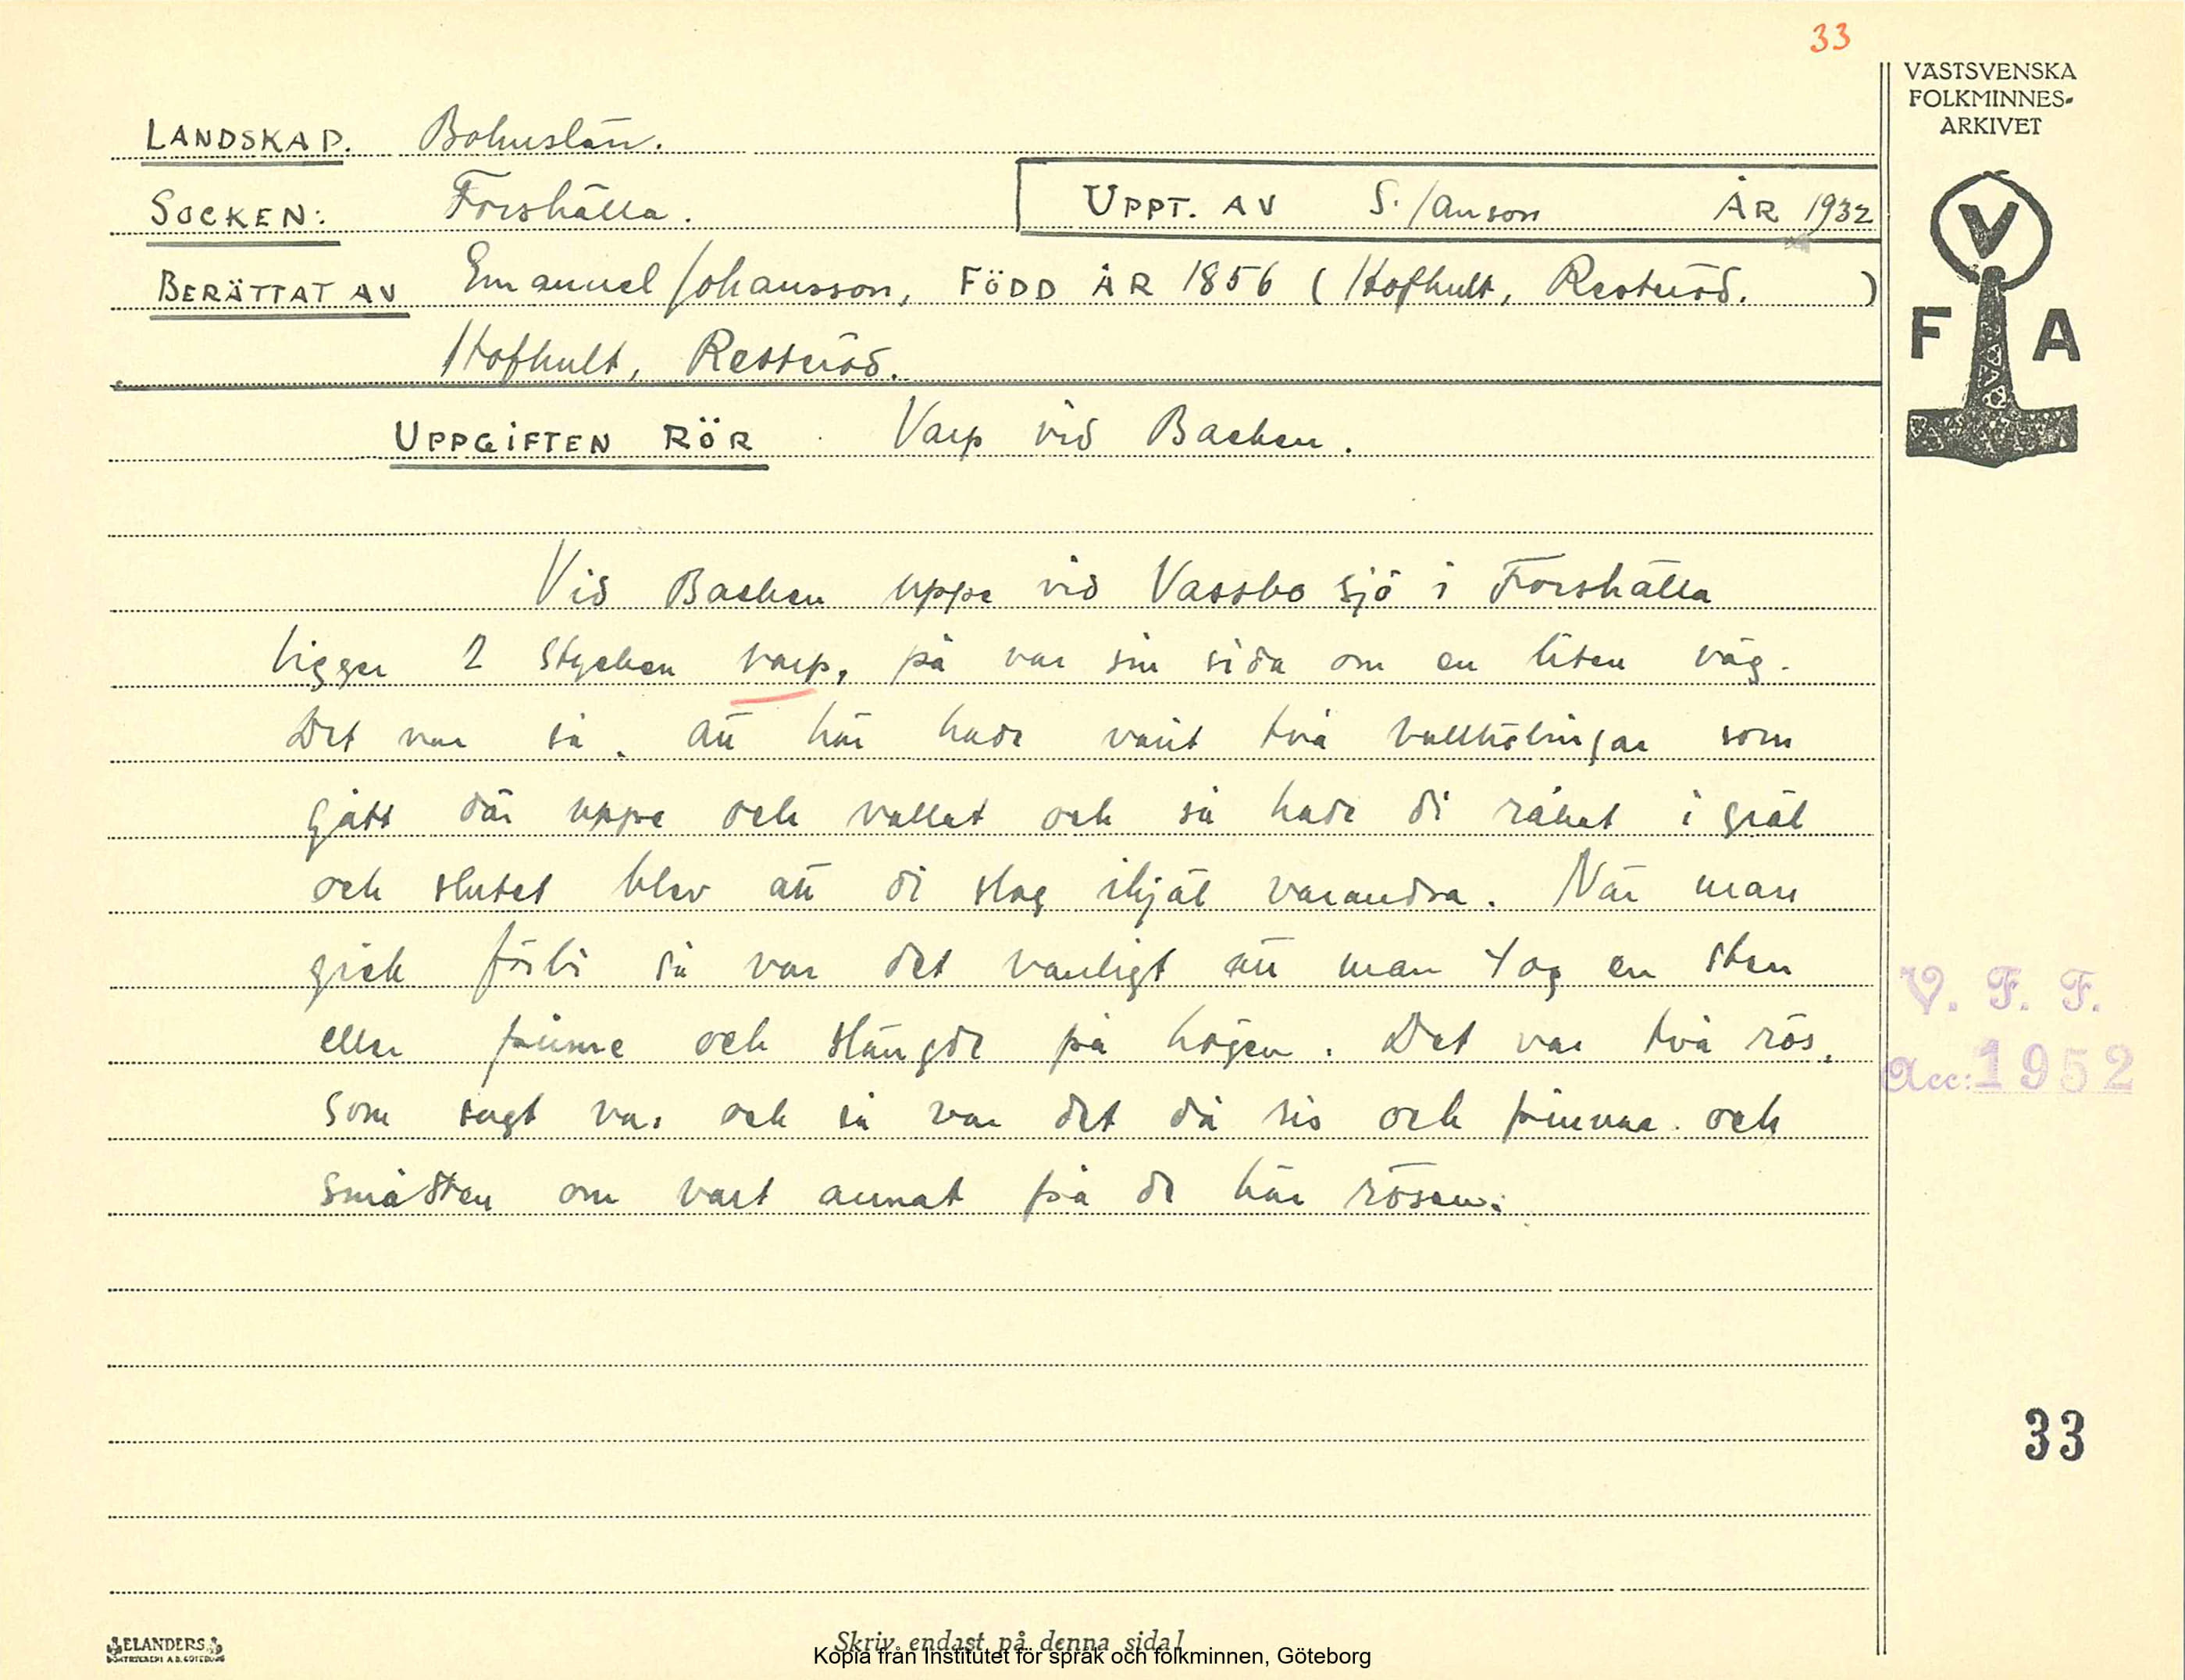 33
VÄSTSVENSKA
FOLKMINNES-
ARKIVET
LANDSKAP. Bohuslän.
SOCKEN: Forshälla.
UPPT. AV S. Janson ÅR 1932
BERÄTTAT AV Emanuel Johansson, FÖDD ÅR 1856 (Hofhult, Resteröd. )
Hofhult, Resteröd.
V
F A
UPPGIFTEN RÖR Varp vid Backen.
Vid Backen uppe vid Vassbo sjö i Forshälla
ligger 2 stycken varp, på var sin sida om en liten väg.
Det var så, att här hade varit två vallhölingar som
gått där uppe och vallat och så hade di råkat i gräl
och slutet blev att di slog ihjäl varandra. När man
gick förbi så var det vanligt att man tog en sten
eller pinne och slängde på högen. Det var två rös,
som sagt var och så var det då ris och pinnar och
småsten om vart annat på de här rösen.
V. F. F.
Acc: 1952
33
ELANDERS
BOKTRYCKERI A.B. GÖTEBORG
Skriv endast på denna sida!
Kopia från Institutet för språk och folkminnen, Göteborg